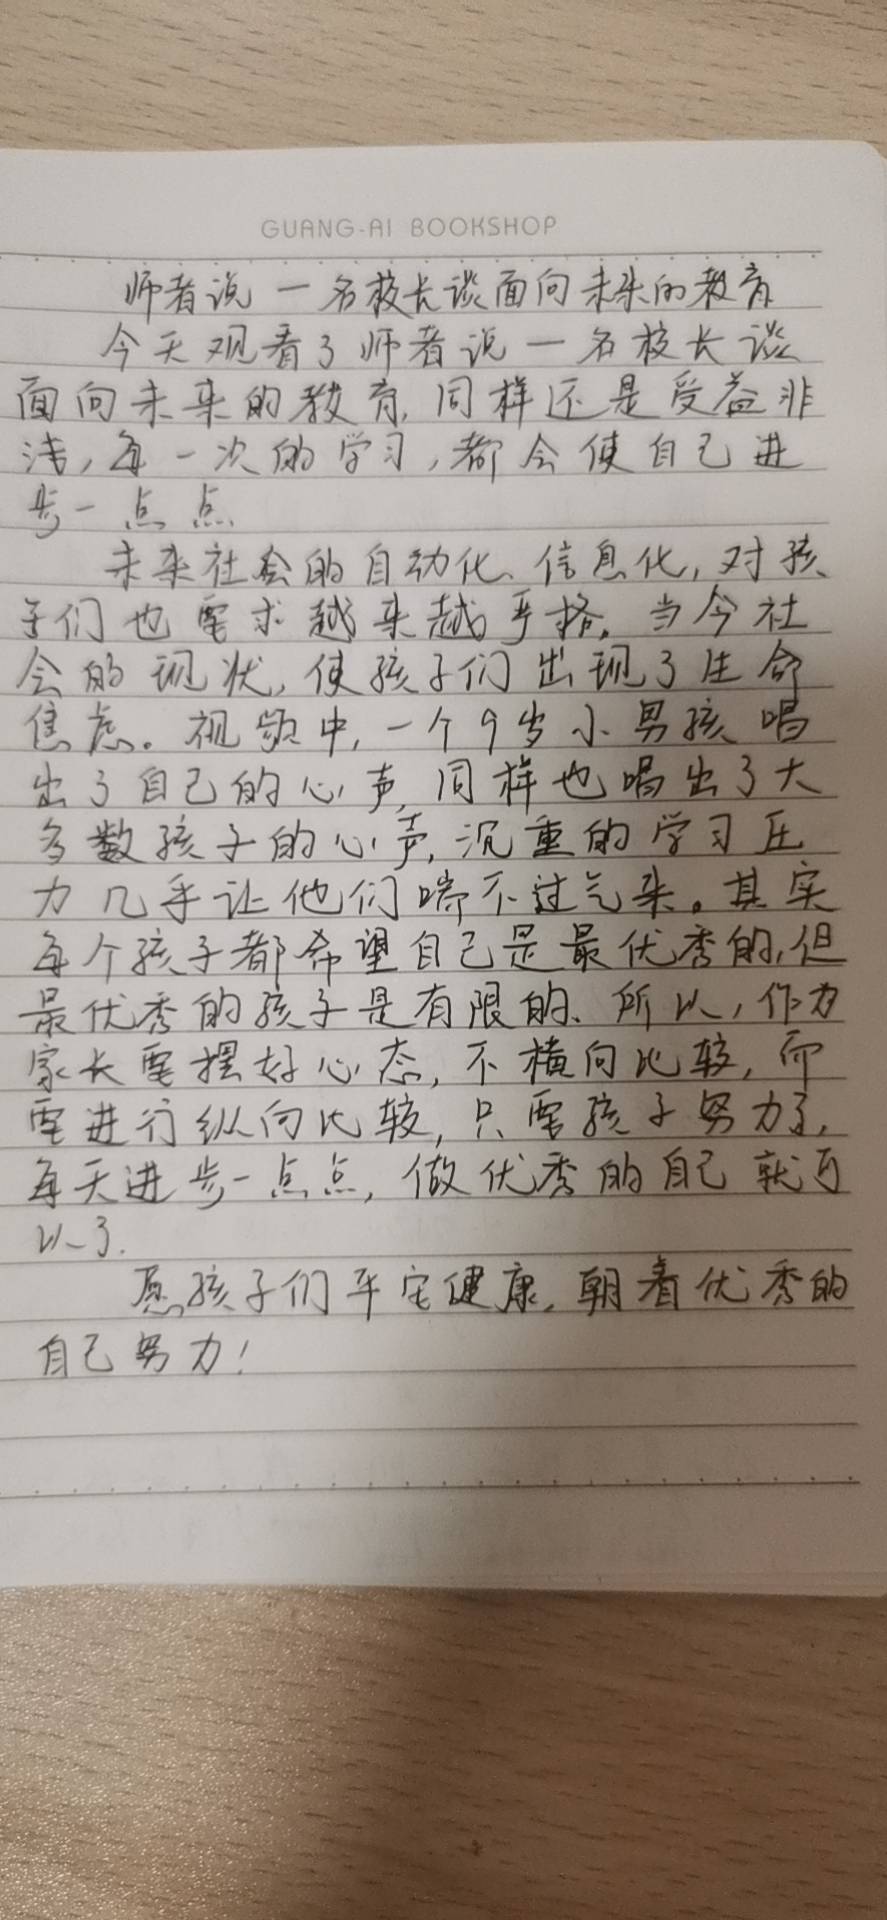 GUANG-AI BOOKSHOP
师者说一名校长谈面向未来的教育
今天观看了师者说一名校长谈
面向未来的教育,同样还是受益非
浅,每一次的学习,都会使自己进
步一点点
未来社会的自动化、信息化,对孩
子们也要求越来越严格。当今社
会的现状,使孩子们出现了生命
焦虑。视频中,一个9岁小男孩唱
出了自己的心声,同样也唱出了大
多数孩子的心声,沉重的学习压
力几乎让他们喘不过气来。其实
每个孩子都希望自己是最优秀的,但
最优秀的孩子是有限的、所以,作为
家长要摆好心态,不横向比较,而
要进行纵向比较,只要孩子努力了,
每天进步一点点,做优秀的自己就可
以了.
愿孩子们平安健康,朝着优秀的
自己努力!